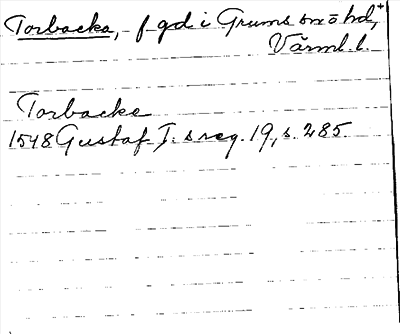 Torbacka, f. gd i Grums sn o hd,+
Värml. l.
Torbacke
1548 Gustaf I:s reg. 19, s. 285.